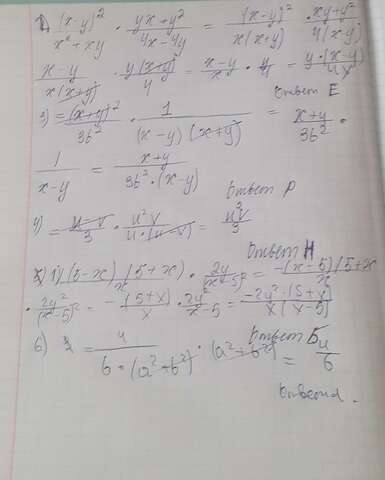 (x-y)² / x²+xy · yx+y² / 4x-4y = (x-y)² / x(x+y) · xy+y² / 4(x-y)
x-y / x(x+y) · y(x+y) / 4 = x-y / x · y / 4 = y·(x-y) / 4x
ответ E
3) = (x+y)² / 3b² · 1 / (x-y)(x+y) = x+y / 3b² ·
1 / x-y = x+y / 3b²·(x-y)
ответ P
4) = u-v / 3 · u²v / u·(u-v) = u²v / 3
ответ H
1) (5-x)(5+x) / x · 2y² / (x-5)² = -(x-5)(5+x / x
· 2y² / (x-5)² = -(5+x) / x · 2y² / x-5 = -2y²·(5+x) / x(x-5)
ответ Б
6) = 4 / 6·(a²+b²) · (a²+b²) = 4 / 6
ответ